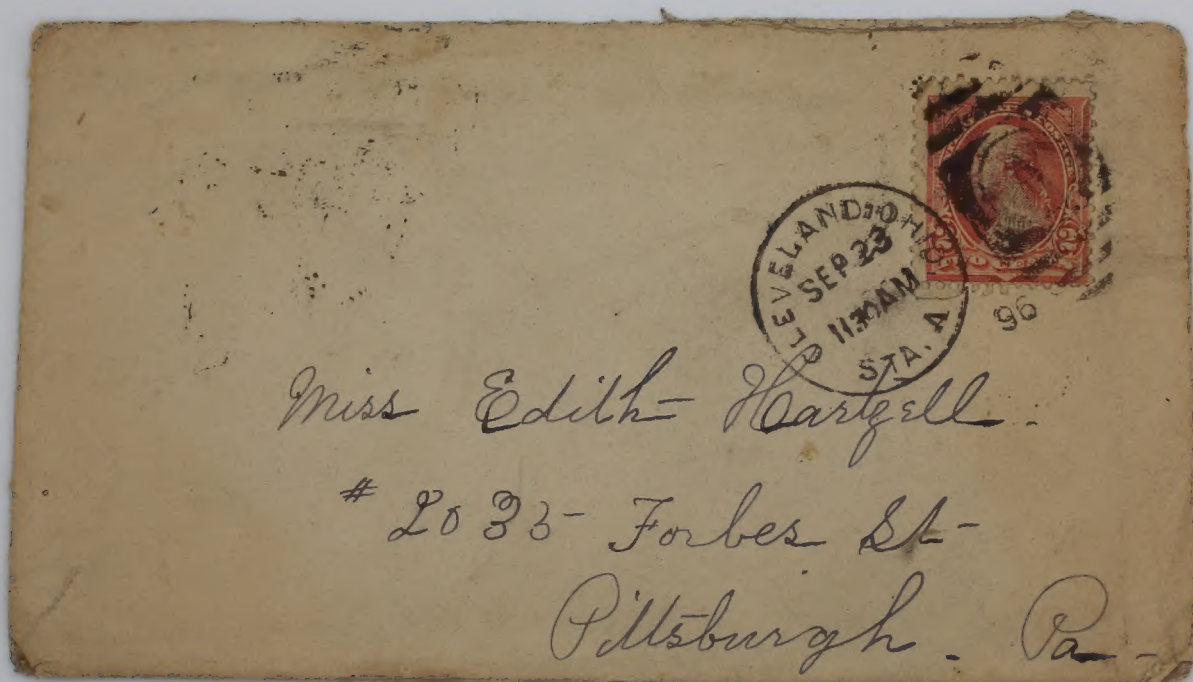 CLEVELAND, OHIO
SEP 23
1130AM
STA. A
96
Miss Edith Hartzell.
# 2035 Forbes St
Pittsburgh. Pa